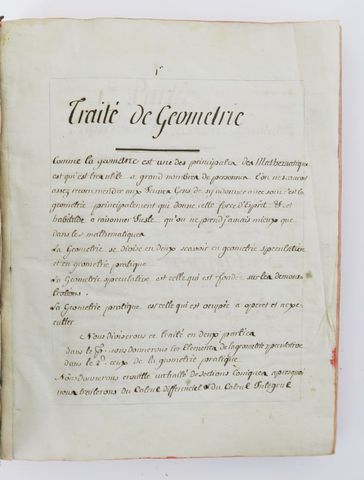 1r
Traité de Geometrie
Comme la geometrie est une des principales des Mathematiques
est qu'est tres utile a grand nombres de personnes L'on ne sauroit
assez recommender aux Jeunes Gens de s'y donner avec soin c'est la
geometrie principalement qui donne cette force d'Esprit & cet
habitude a raisonner Juste qu'on ne prend Jamais mieux que
dans les mathematiques
La Geometrie se divise en deux scavoir en geometrie speculative
et en geometrie pratique
La Geometrie speculative est celle qui est fondée sur les demons
trations.
La Geometrie pratique est celle qui est ocupée a operer et a exe
cutter
Nous diviserons ce traité en deux parties
dans la 1re. nous donnerons les Elements de la geometrie speculative
dans la 2e. ceux de la geometrie pratique
Nous donnerons ensuitte un traité de sections Coniques apres quoi
nous traiterons du Calcul differentiel & du Calcul Integral